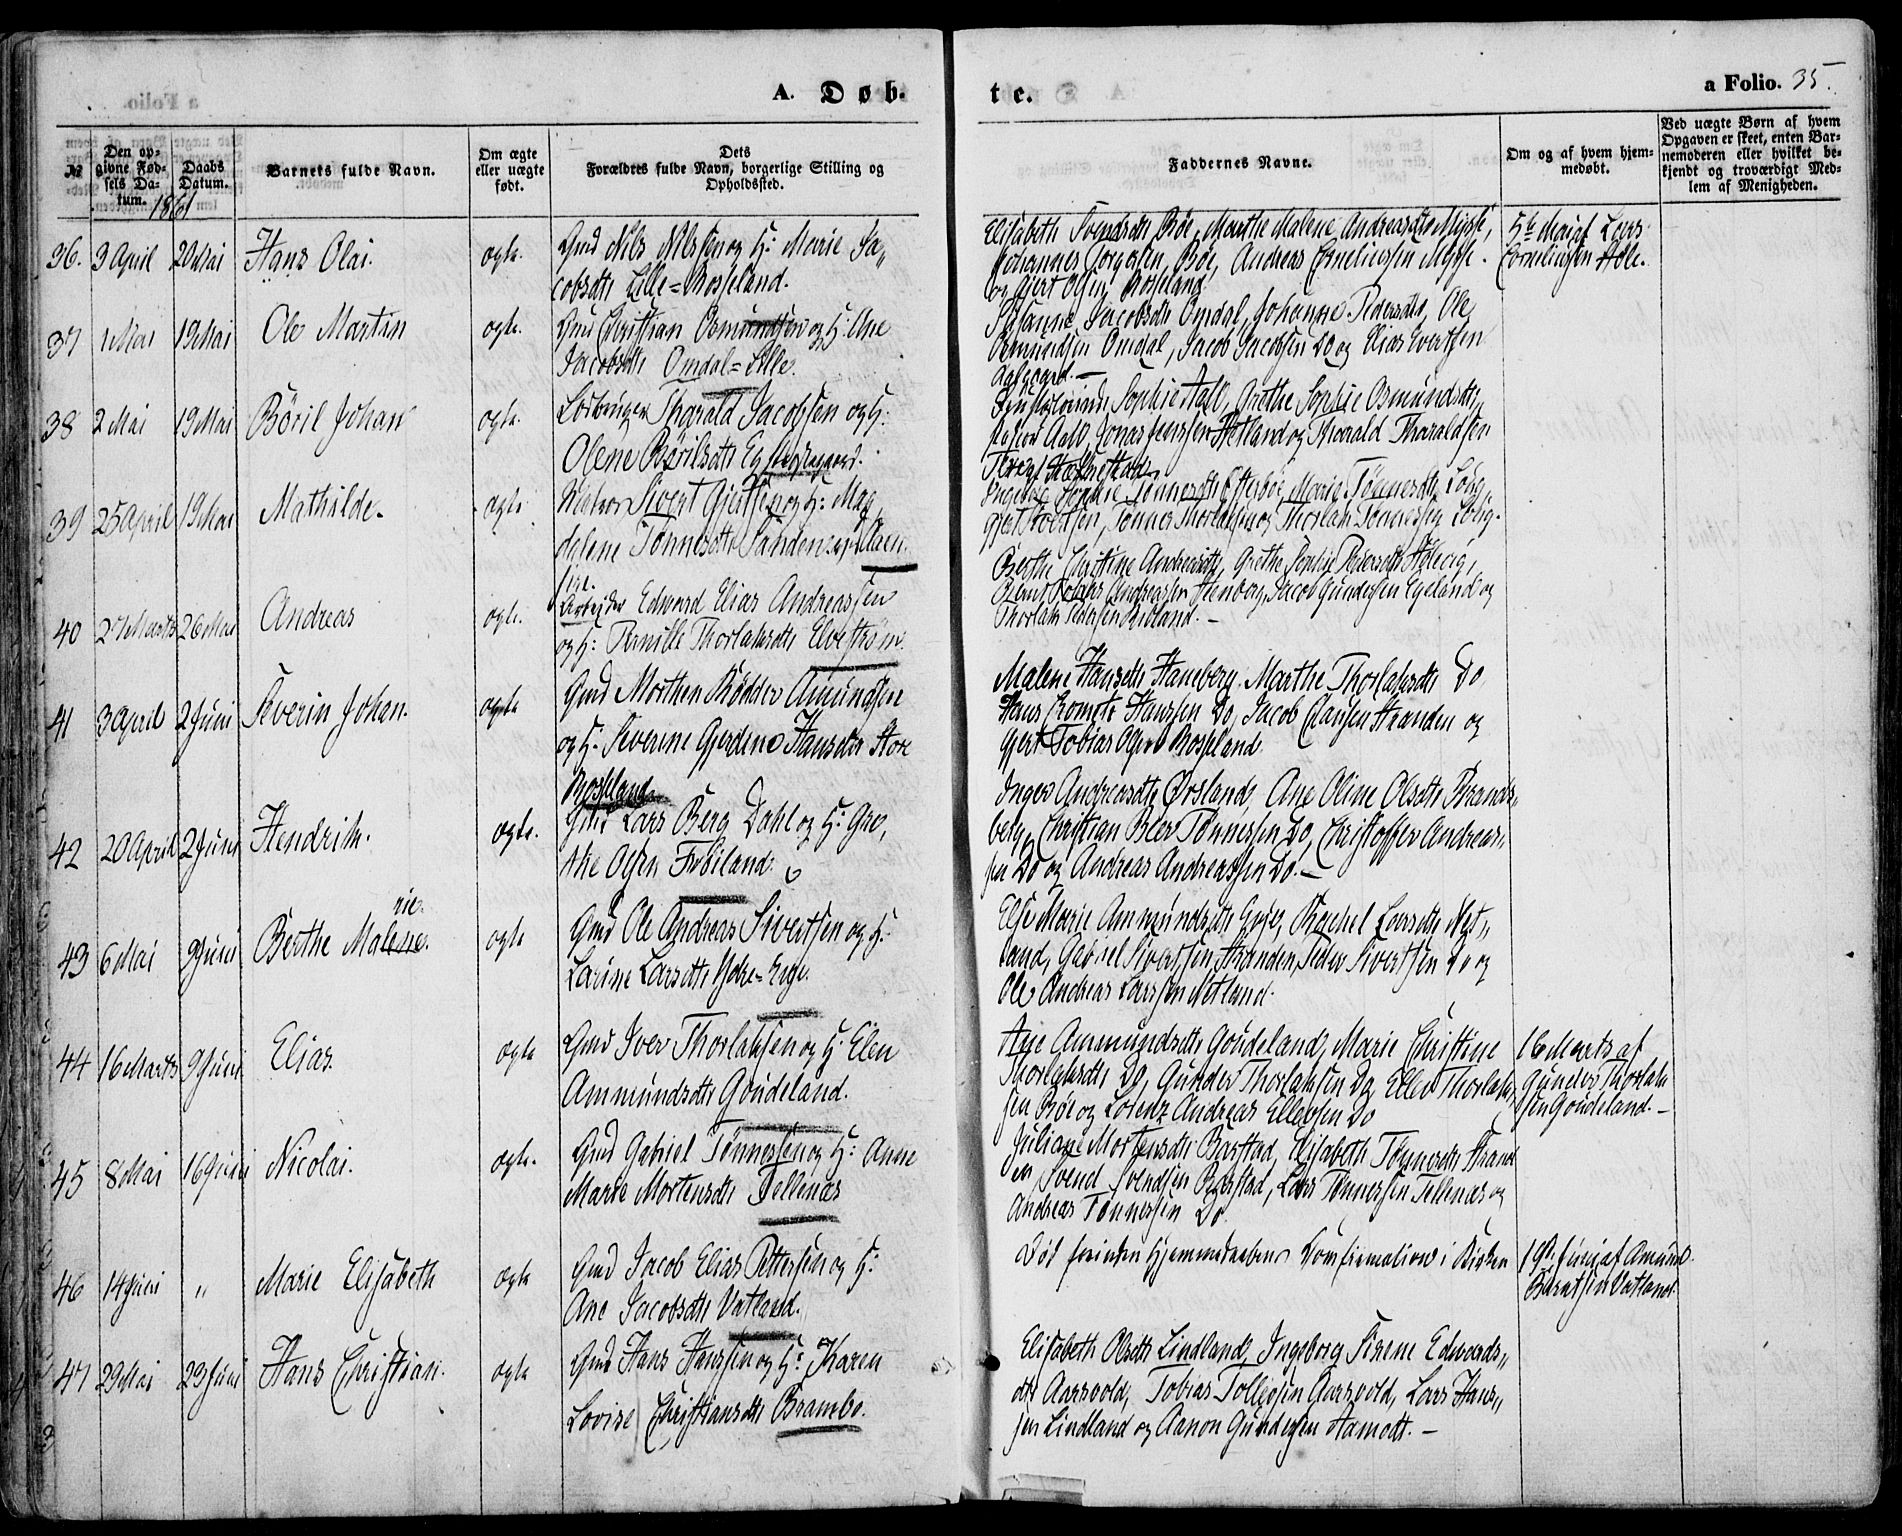 A. Døb- te. a Folio. 35.
№
Den op-
givne Fød-
sels Da-
tum.
1861
Daabs
Datum.
Barnets fulde Navn.
Om ægte
eller uægte
født.
Dets
Forældres fulde Navn, borgerlige Stilling og
Opholdssted.
Faddernes Navne.
Om og af hvem hjem-
medøbt.
Ved uægte Børn af hvem
Opgaven er skeet, enten Bar-
nemoderen eller hvilket be-
kjendt og troværdigt Med-
lem af Menigheden.
36. 3 April 20 Mai Hans Olai. ægte.
Gmd Nils Nilssen og H: Marie Ja„
cobsdtr Lille=Roseland.
Elisabeth Svendsdtr Bøe, Marthe Malene Andreasdtr
Johannes Bøe, Andreas Corneliussen
og Gjert Olsen Roseland
5te Mai af Lars
Corneliussen
37 1 Mai 19 Mai Ole Martin ægte.
Gmd Christian Osmundsen og H: Ane
Jacobsdtr Omdal=Lille.
Susanne Jacobsdtr Omdal, Johanne Pedersdtr, Ole
Osmundsen Omdal, Jacob Jacobsen Do og Elias Evertsen
38 2 Mai 19 Mai Børil Johan ægte.
Tharald Jacobsen og H:
Olene Børilsdtr
Sophie Aall, Grethe Sophie Osmundsdtr,
Aall, Jonas Jenssen Hetland og Tharald Tharaldsen
39 25 April 19 Mai Mathilde. ægte
Matros Sivert Gjertsen og H: Mag„
dalene Tønnesdtr
Sophie Tønnesdtr Marie Tønnesdtr
Gjert Tønnes Thorlaksen og Thorlak Tønnesen
40 27 Marts 26 Mai Andreas ægte.
Arbejder Edward Elias Andreassen
og H: Pernille Thorlaksdtr Elvestrøm.
Berthe Christine Andreasdtr, Grethe Sophie Pedersdtr
Bernt Tobias Andreassen Jacob Gundersen Egeland og
Thorlak Pedersen
41 3 April 2 Juni Severin Johan. ægte
Gmd Morthen Rødder Amundsen
og H. Severine Gjerdine Hansdtr Store
Roseland
Malene Hansdtr Haneberg, Marthe Thorlaksdtr Do
Hans Hanssen Do, Jacob Clausen Stranden og
Gjert Tobias Olsen Roseland.
42 20 April 2 Juni Hendrik. ægte.
Gmd Lars Berg Dahl og H: Gre„
the Olsen Frøiland.
Inger Andreasdtr Ørsland, Ane Oline Olsdtr Brands„
berg, Christian Tønnessen Do, Christoffer Andreas„
sen Do og Andreas Andreassen Do.—
43 6 Mai 9 Juni Berthe Malene. rie. ægte
Gmd Ole Andreas Sivertsen og H.
Larine Larsdtr
Else Marie Ammundsdtr Rachel Larsdtr Net„
land, Gabriel Sivertsen Stranden, Peder Sivertsen Do og
Ole Andreas Larssen Netland.
44 16 Marts 9 Juni Elias. ægte
Gmd Iver Thorlaksen og H: Elen
Ammundsdtr Goudeland.
Ane Ammundsdtr Goudeland, Marie Christine
Thorlaksdtr Do, Gunder Thorlaksen Do, Ellev Thorlak„
sen Bøe og Lorenz Andreas Ellevsen Do
16 Marts af
Gunder Thorlak„
sen Goudeland.—
45 8 Mai 16 Juni Nicolai. ægte.
Gmd Gabriel Tønnessen og H: Anne
Marie Mortensdtr Tellenæs
Juliane Mortensdtr Barstad, Elisabeth Tønnesdtr Strand
en, Svend Svendsen Barstad, Lars Tønnessen Tellenæs og
Andreas Tønnessen Do.
46 14 Juni „ Marie Elisabeth ægte
Gmd Jacob Elias Pettersen og H:
Ane Jacobsdtr Vatland.
Død forinden Hjemmedaabens Confirmation i Kirken
19de Juni af Amund
Vatland.
47 29 Mai 23 Juni Hans Christian. ægte
Gmd Hans Hanssen og H: Karen
Lovise Christiansdtr Brambo.
Elisabeth Olsdtr Lindland, Ingeborg Sirene Edwards„
dtr Aarsvold, Tobias Tollevsen Aarsvold, Lars Hans„
sen Lindland og Aanon Gundersen Aamodt.—